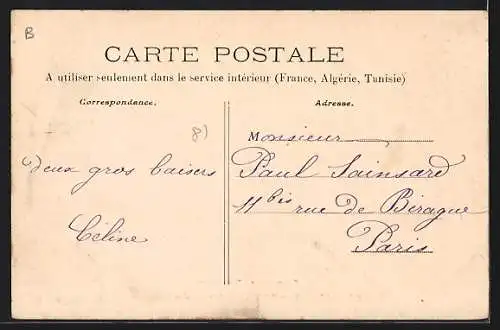 B
CARTE POSTALE
A utiliser seulement dans le service intérieur (France, Algérie, Tunisie)
Correspondance.
Adresse.
8)
deux gros baisers
Céline
Monsieur
Paul Sainsard
11 bis rue de Birague
Paris